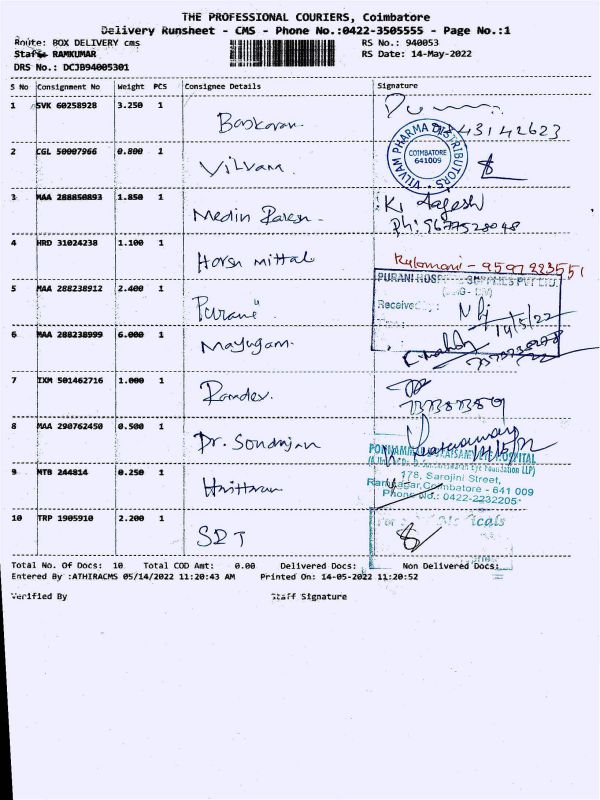 THE PROFESSIONAL COURIERS, Coimbatore
Delivery Runsheet - CMS - Phone No.:0422-3505555 - Page No.:1
Route: BOX DELIVERY cms
RS No.: 940053
Staff: RAMKUMAR
RS Date: 14-May-2022
DRS No.: DCJB94005301
S No Consignment No Weight PCS Consignee Details Signature
1 SVK 60258928 3.250 1 Baskaran
43142623
2 CGL 50007966 0.800 1 Vilvam
VILVAM PHARMA DISTRIBUTORS
COIMBATORE
641009
3 MAA 288850893 1.850 1 Medin
Ph: 9677528048
4 HRD 31024238 1.100 1 Harsh mittal
5 MAA 288238912 2.400 1 Purani
PURANI HOSPITAL SUPPLIES PVT LTD.
Received
14/5/22
6 MAA 288238999 6.000 1 Mayugam
7 IXM 501462716 1.000 1 Ramdev.
8 MAA 290762450 0.500 1 Dr.
EYE HOSPITAL
Eye Foundation LLP)
178, Sarojini Street,
Ramnagar, Coimbatore - 641 009
Phone No.: 0422-2232205
9 MTB 244814 0.250 1
10 TRP 1905910 2.200 1 SRT
For
Total No. Of Docs: 10 Total COD Amt: 0.00 Delivered Docs: Non Delivered Docs:
Entered By :ATHIRACMS 05/14/2022 11:20:43 AM Printed On: 14-05-2022 11:20:52
Verified By Staff Signature